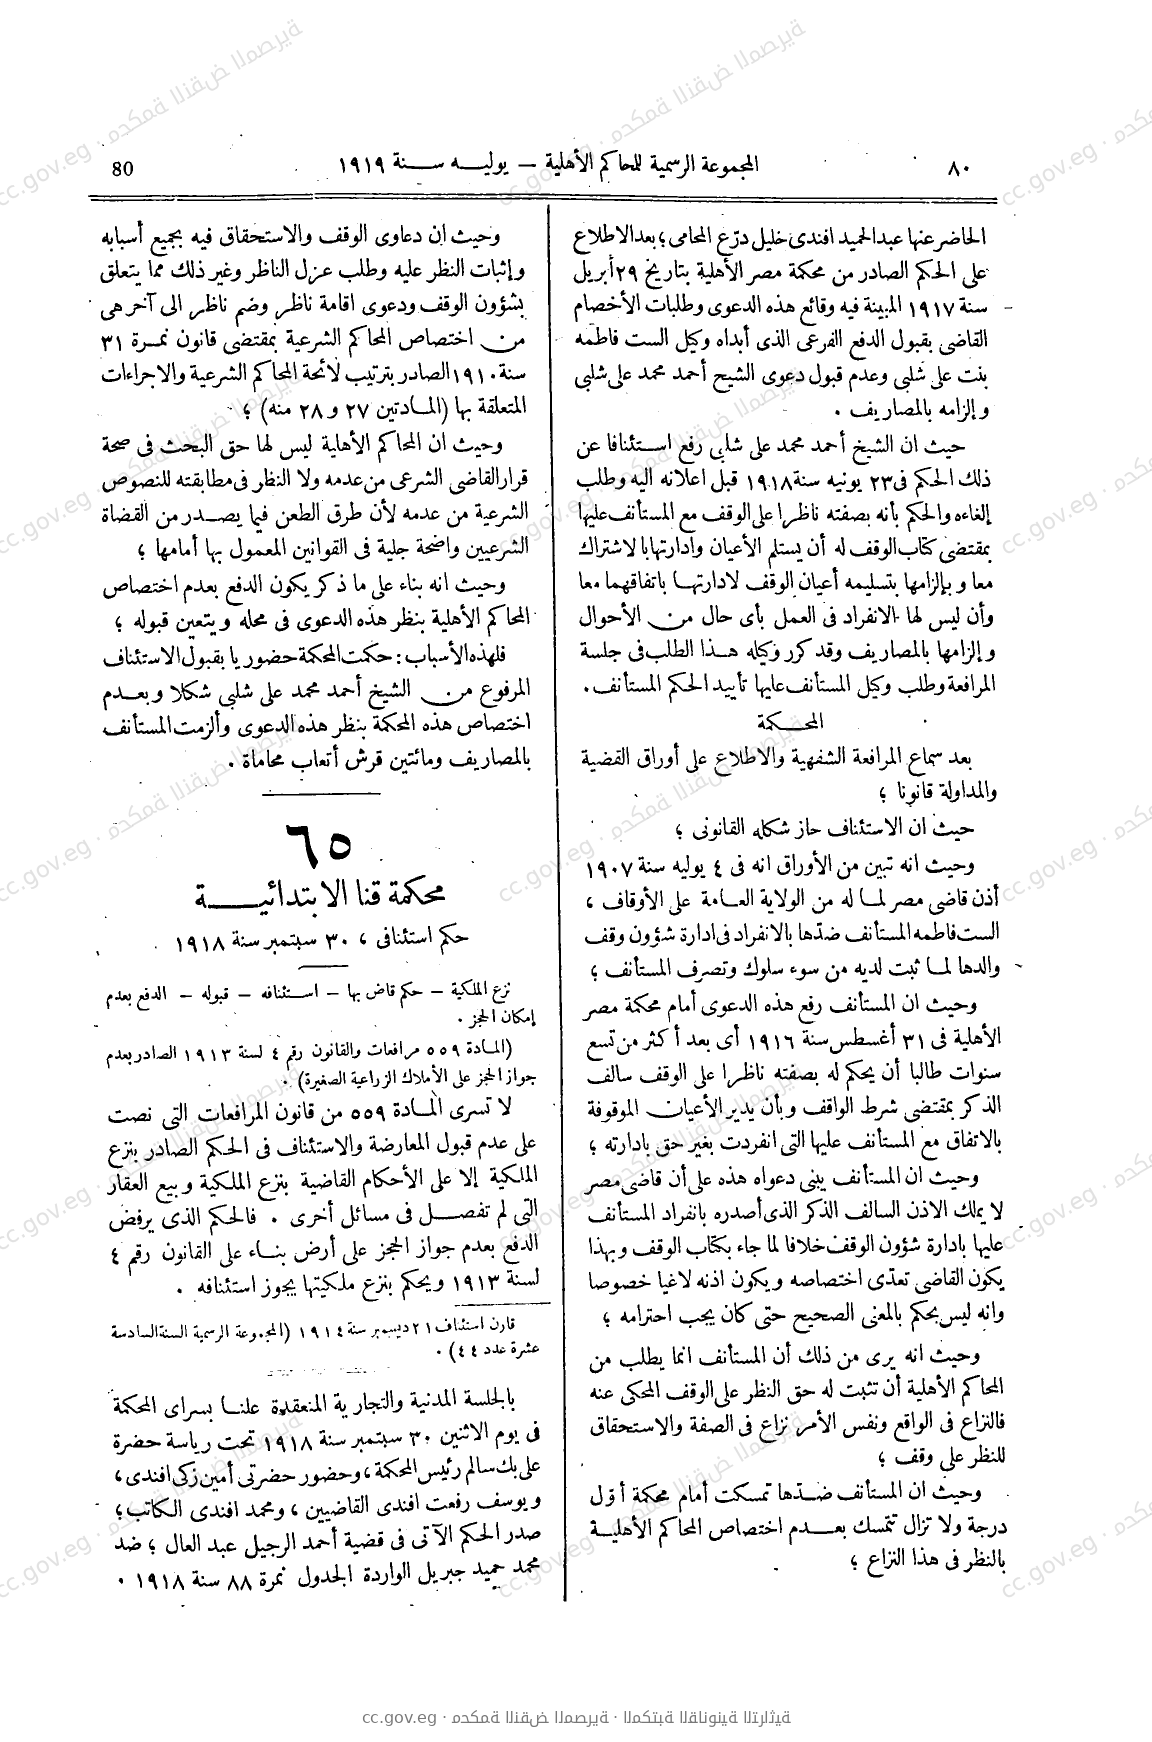 ٨٠
المجموعة الرسمية للمحاكم الأهلية – يوليه سنة ١٩١٩
80
الحاضر عنها عبد الحميد افندى خليل درّع المحامى ؛ بعد الاطلاع
على الحكم الصادر من محكمة مصر الأهلية بتاريخ ٢٩ أبريل
سنة ١٩١٧ المبينة فيه وقائع هذه الدعوى وطلبات الأخصام
القاضى بقبول الدفع الفرعى الذى أبداه وكيل الست فاطمه
بنت على شلبى وعدم قبول دعوى الشيخ أحمد محمد على شلبى
وإلزامه بالمصاريف .
حيث ان الشيخ أحمد محمد على شلبى رفع استئنافا عن
ذلك الحكم فى ٢٣ يونيه سنة ١٩١٨ قبل اعلانه اليه وطلب
إلغاءه والحكم بأنه بصفته ناظرا على الوقف مع المستأنف عليها
بمقتضى كتاب الوقف له أن يستلم الأعيان وادارتها بالاشتراك
معا وبإلزامها بتسليمه أعيان الوقف لادارتها باتفاقهما معا
وأن ليس لها الانفراد فى العمل بأى حال من الأحوال
وإلزامها بالمصاريف وقد كرر وكيله هذا الطلب فى جلسة
المرافعة وطلب وكيل المستأنف عليها تأييد الحكم المستأنف .
المحكمة
بعد سماع المرافعة الشفهية والاطلاع على أوراق القضية
والمداولة قانونا ؛
حيث ان الاستئناف حاز شكله القانونى ؛
وحيث انه تبين من الأوراق انه فى ٤ يوليه سنة ١٩٠٧
أذن قاضى مصر لما له من الولاية العامة على الأوقاف ،
الست فاطمه المستأنف ضدّها بالانفراد فى ادارة شؤون وقف
والدها لما ثبت لديه من سوء سلوك وتصرف المستأنف ؛
وحيث ان المستأنف رفع هذه الدعوى أمام محكمة مصر
الأهلية فى ٣١ أغسطس سنة ١٩١٦ أى بعد أكثر من تسع
سنوات طالبا أن يحكم له بصفته ناظرا على الوقف سالف
الذكر بمقتضى شرط الواقف وبأن يدير الأعيان الموقوفة
بالاتفاق مع المستأنف عليها التى انفردت بغير حق بادارته ؛
وحيث ان المستأنف يبنى دعواه هذه على أن قاضى مصر
لا يملك الاذن السالف الذكر الذى أصدره بانفراد المستأنف
عليها بادارة شؤون الوقف خلافا لما جاء بكتاب الوقف وبهذا
يكون القاضى تعدّى اختصاصه ويكون اذنه لاغيا خصوصا
وانه ليس بحكم بالمعنى الصحيح حتى كان يجب احترامه ؛
وحيث انه يرى من ذلك أن المستأنف انما يطلب من
المحاكم الأهلية أن تثبت له حق النظر على الوقف المحكى عنه
فالنزاع فى الواقع ونفس الأمر نزاع فى الصفة والاستحقاق
للنظر على وقف ؛
وحيث ان المستأنف ضدّها تمسكت أمام محكمة أوّل
درجة ولا تزال تتمسك بعدم اختصاص المحاكم الأهلية
بالنظر فى هذا النزاع ؛
وحيث ان دعاوى الوقف والاستحقاق فيه بجميع أسبابه
وإثبات النظر عليه وطلب عزل الناظر وغير ذلك مما يتعلق
بشؤون الوقف ودعوى اقامة ناظر وضم ناظر الى آخر هى
من اختصاص المحاكم الشرعية بمقتضى قانون نمرة ٣١
سنة ١٩١٠ الصادر بترتيب لائحة المحاكم الشرعية والاجراءات
المتعلقة بها (المادتين ٢٧ و ٢٨ منه) ؛
وحيث ان المحاكم الأهلية ليس لها حق البحث فى صحة
قرار القاضى الشرعى من عدمه ولا النظر فى مطابقته للنصوص
الشرعية من عدمه لأن طرق الطعن فيما يصدر من القضاة
الشرعيين واضحة جلية فى القوانين المعمول بها أمامها ؛
وحيث انه بناء على ما ذكر يكون الدفع بعدم اختصاص
المحاكم الأهلية بنظر هذه الدعوى فى محله ويتعين قبوله ؛
فلهذه الأسباب : حكمت المحكمة حضوريا بقبول الاستئناف
المرفوع من الشيخ أحمد محمد على شلبى شكلا وبعدم
اختصاص هذه المحكمة بنظر هذه الدعوى وألزمت المستأنف
بالمصاريف ومائتين قرش أتعاب محاماة .
٦٥
محكمة قنا الابتدائية
حكم استئنافى ، ٣٠ سبتمبر سنة ١٩١٨
نزع الملكية – حكم قاض بها – استئنافه – قبوله – الدفع بعدم
إمكان الحجز .
(المادة ٥٥٩ مرافعات والقانون رقم ٤ لسنة ١٩١٣ الصادر بعدم
جواز الحجز على الأملاك الزراعية الصغيرة) .
لا تسرى المادة ٥٥٩ من قانون المرافعات التى نصت
على عدم قبول المعارضة والاستئناف فى الحكم الصادر بنزع
الملكية إلا على الأحكام القاضية بنزع الملكية وبيع العقار
التى لم تفصل فى مسائل أخرى . فالحكم الذى يرفض
الدفع بعدم جواز الحجز على أرض بناء على القانون رقم ٤
لسنة ١٩١٣ ويحكم بنزع ملكيتها يجوز استئنافه .
قارن استئناف ٢١ ديسمبر سنة ١٩١٤ (المجموعة الرسمية السنة السادسة
عشرة عدد ٤٤) .
بالجلسة المدنية والتجارية المنعقدة علنا بسراى المحكمة
فى يوم الاثنين ٣٠ سبتمبر سنة ١٩١٨ تحت رياسة حضرة
على بك سالم رئيس المحكمة ، وحضور حضرتى أمين زكى افندى ،
ويوسف رفعت افندى القاضيين ، ومحمد افندى الكاتب ؛
صدر الحكم الآتى فى قضية أحمد الرجيل عبد العال ؛ ضد
محمد حميد جبريل الواردة الجدول نمرة ٨٨ سنة ١٩١٨ .
cc.gov.eg · محكمة النقض المصرية · المكتبة القانونية التراثية